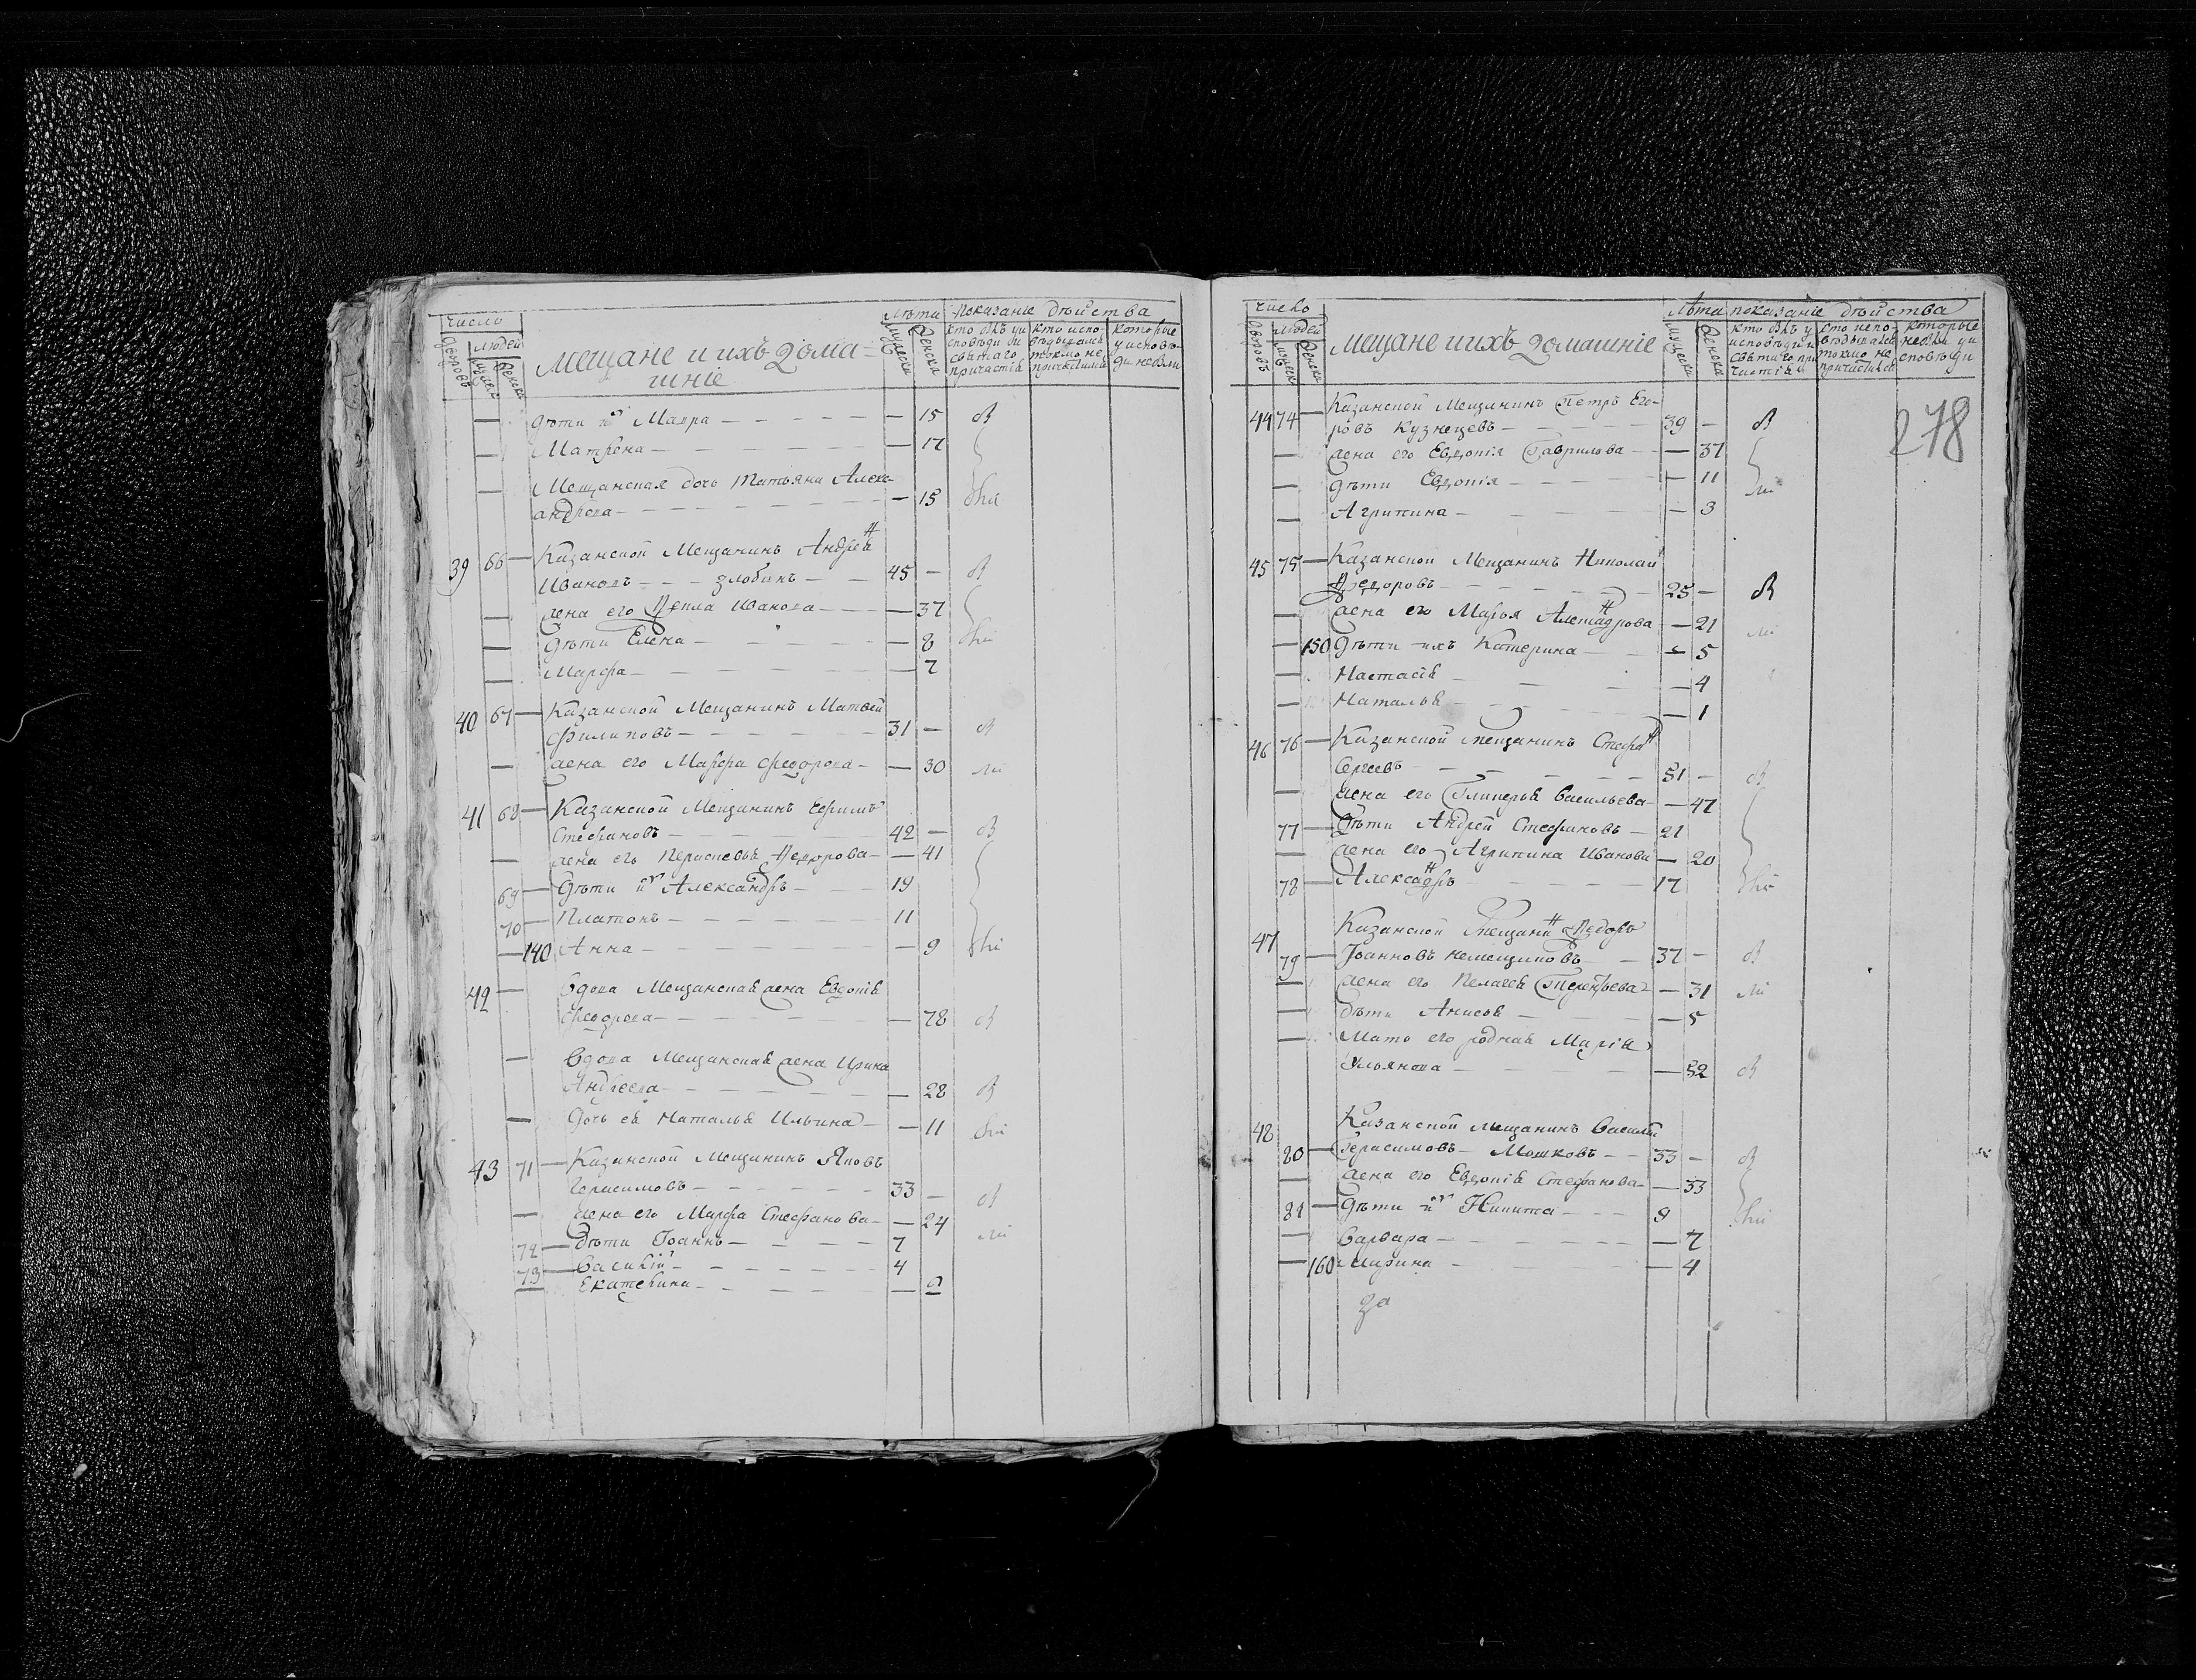 число
людей
дворовъ
мужеска
женска
мещане и ихъ дома-
шніе
лѣта
мужеска
женска
показаніе дѣйства
кто былъ у и
сповѣди и
святаго
причастія
кто испо-
вѣдывался
токмо не
причастился
которые
у исповѣ-
ди небыли
— дѣти ихъ Мавра — — — 15
— Матрена — — 17
— Мещанская дочь Татьяна Алекс-
андрова — — 15
39 66 — Казанской Мещанинъ Андрей
Ивановъ — — злобинъ — 45 —
— жена его Фекла Иванова — — 37
— дѣти Елена — — 8
— Марфа — — 7
40 67 — Казанской Мещанинъ Матвей
Филиповъ — 31 —
— жена его Марфа Федорова — — 30
41 68 — Казанской Мещанинъ Ефимъ
Стефановъ — 42 —
— жена его Парасковья Федорова — — 41
69 — Дѣти ихъ Александръ — 19
70 — Платонъ — 11
— 140 Анна — — 9
42 — Вдова Мещанская жена Евдокія
Федорова — — 78
— Вдова Мещанская жена Ирина
Андреева — — 28
— Дочь ея Наталья Ильина — — 11
43 71 — Казанской Мещанинъ Яковъ
Герасимовъ — 33 —
— жена его Марфа Стефанова — — 24
72 — дѣти Іоаннъ — 7
73 — Василій — 4
— Екатерина — —
число
людей
дворовъ
мужеска
женска
мещане и ихъ домашніе
лѣта
мужеска
женска
показаніе дѣйства
кто былъ у
исповѣди и
святаго при
частія
кто испо-
вѣдывался
токмо не
причастился
которые
небыли у и
сповѣди
278
44 74 — Казанской Мещанинъ Петръ Его-
ровъ Кузнецевъ — 39 —
— жена его Евдокія Гаврилова — — 37
— дѣти Евдокія — — 11
— Агрипина — — 3
45 75 — Казанской Мещанинъ Николай
Федоровъ — 25 —
— жена его Марья Александрова — 21
— 150 Дѣти ихъ Катерина — — 5
— Настасія — — 4
— Наталья — — 1
46 76 — Казанской мещанинъ Стефанъ
Сергеевъ — 51 —
— жена его Гликерья Васильева — — 47
77 — Дѣти Андрей Стефановъ — 21
— жена его Агрипина Иванова — 20
78 — Александръ — 17
47 Казанской Мещанинъ Федоръ
79 — Іоанновъ — 37 —
— жена его Пелагея Терентьева — 31
— дѣти Анисья — — 5
— Мать его родная Марія
Ульянова — — 52
48 Казанской мещанинъ Василій
80 — Герасимовъ — Мошковъ — — 33 —
— жена его Евдокія Стефанова — — 33
81 — Дѣти ихъ Никита — 9
— Варвара — — 7
— 160 Марина — — 4